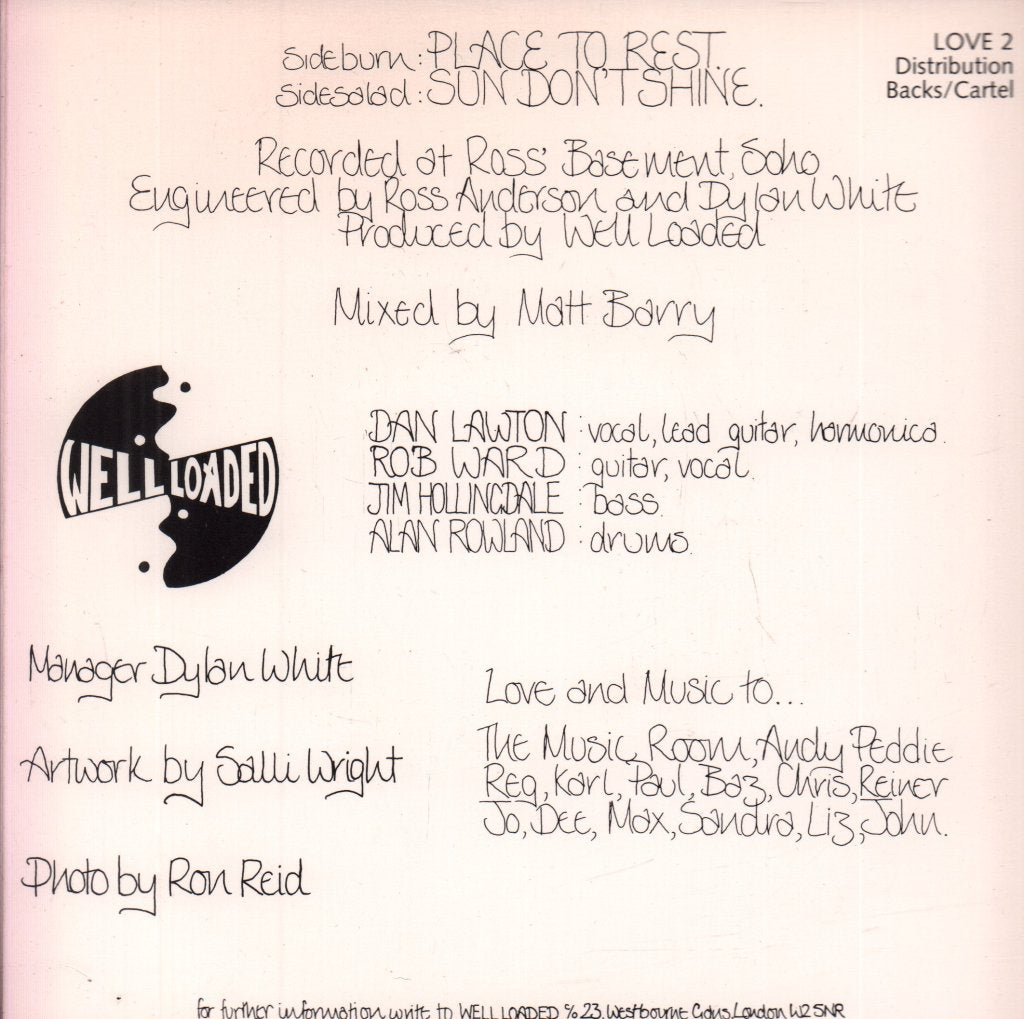 sideburn: PLACE TO REST.
sidesalad: SUN DON'T SHINE.
LOVE 2
Distribution
Backs/Cartel
Recorded at Ross' Basement, Soho
Engineered by Ross Anderson and Dylan White
Produced by Well Loaded
Mixed by Matt Barry
WELL LOADED
DAN LAWTON : vocal, lead guitar, harmonica.
ROB WARD : guitar, vocal.
JIM HOLLINGDALE : bass.
ALAN ROWLAND : drums.
Manager Dylan White
Artwork by Salli Wright
Photo by Ron Reid
Love and Music to...
The Music Room, Andy Peddie
Reg, Karl, Paul, Baz, Chris, Reiner
Jo, Dee, Max, Sandra, Liz, John.
for further information write to WELL LOADED c/o 23, Westbourne Gdns, London W2 5NR